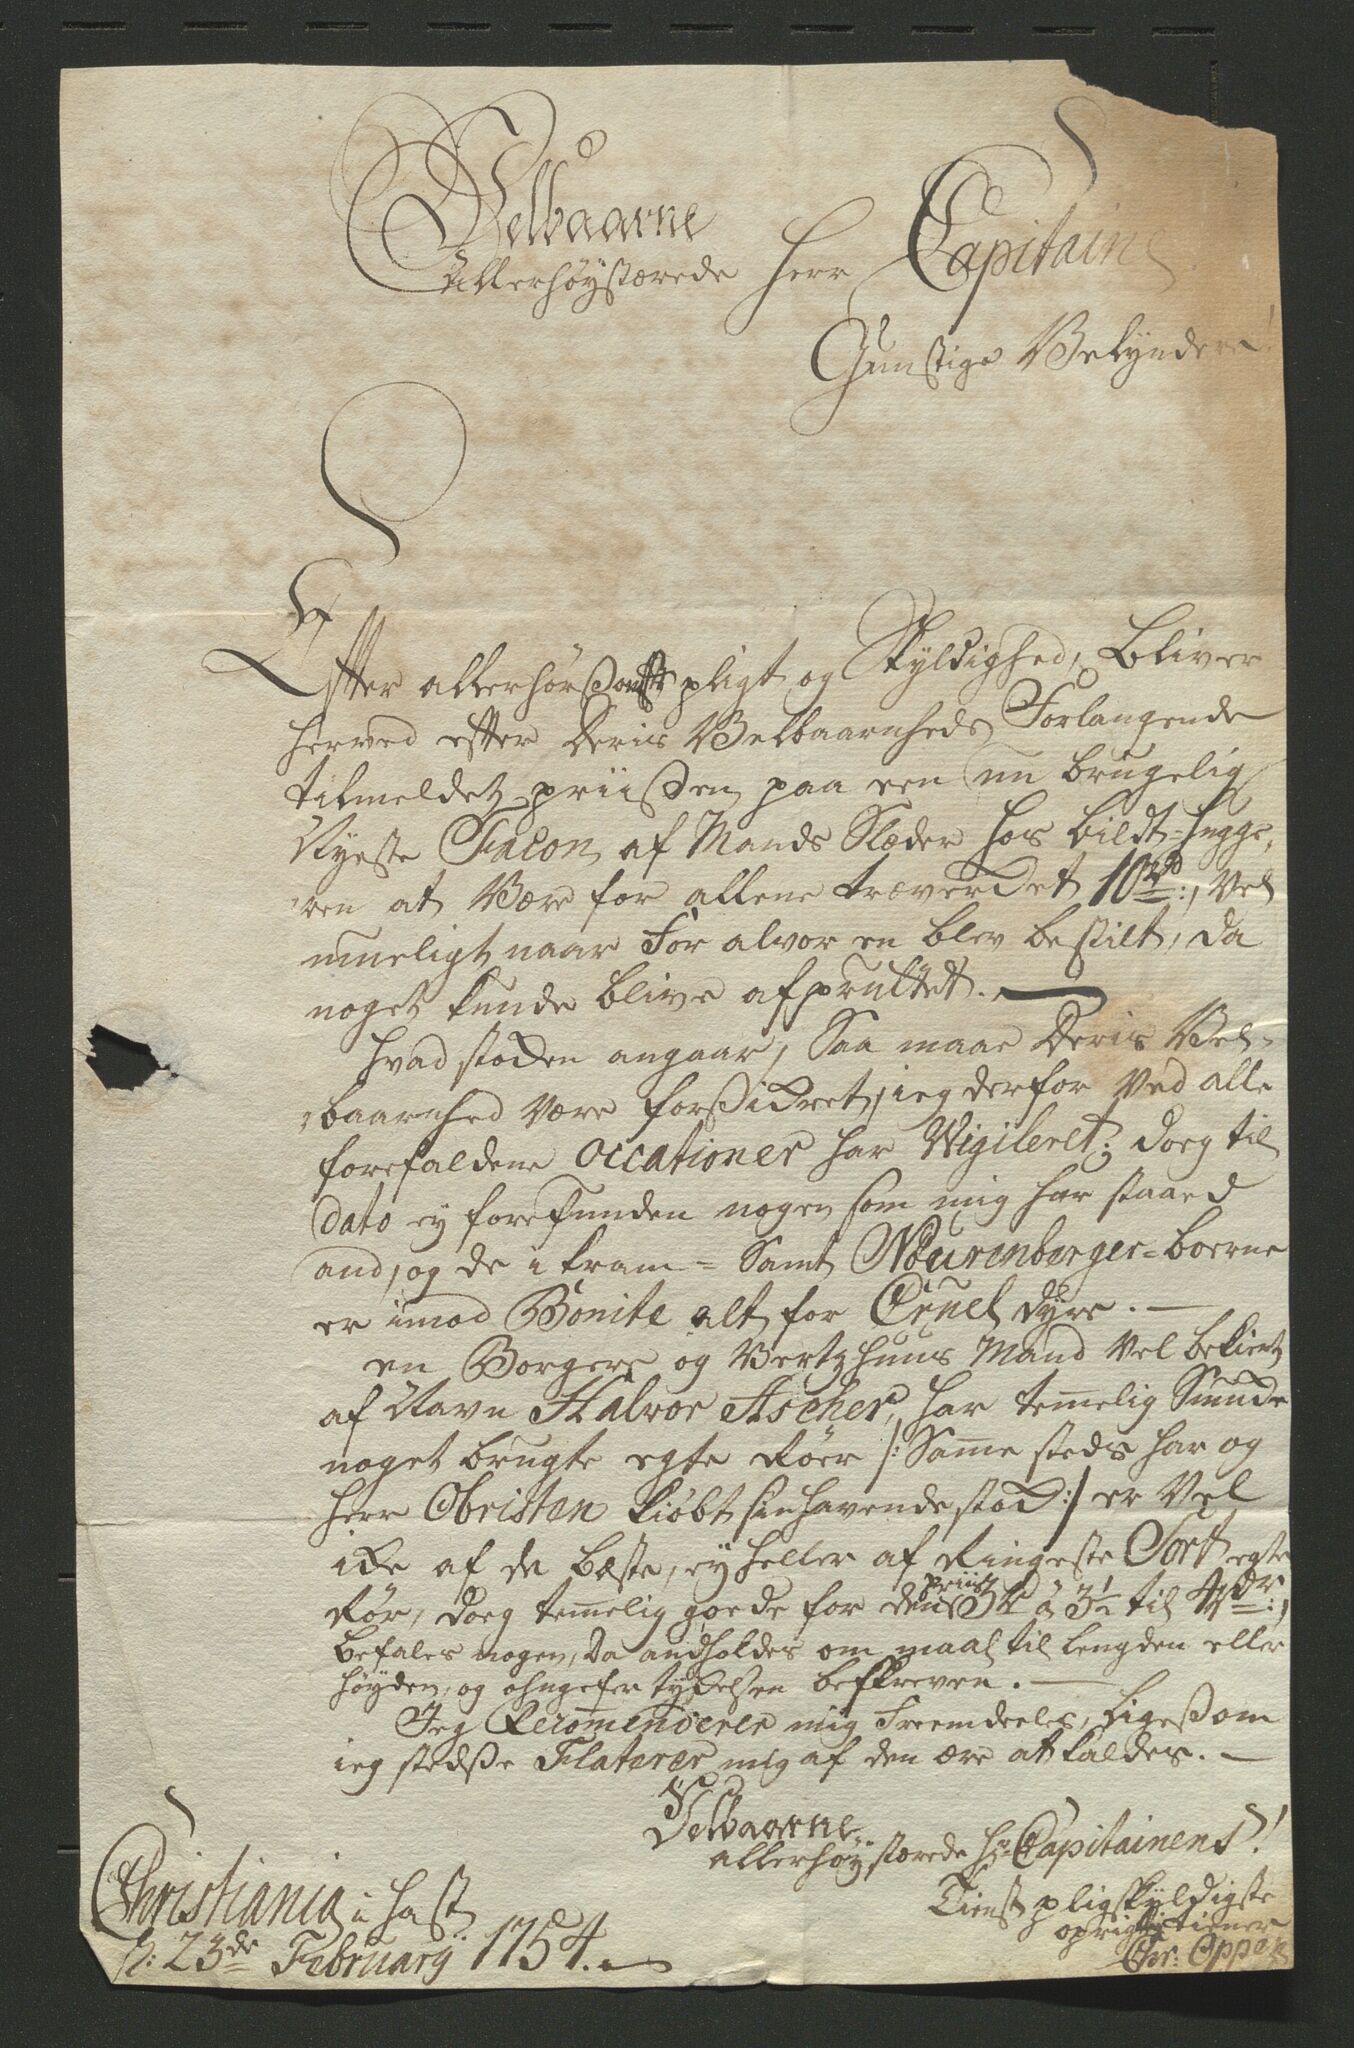 Velbaarne
Allerhøystærede Herr Capitain
Gunstige Velyndere!
Efter allerhørsomste pligt og Skyldighed, bliver
herved efter Deris Velbaarnheds Forlangende
tilmeldet priisen paa een nu brugelig
Nyeste Facon af Mands Slæder hos bildt-hugge,
ren at Være for allene træverdet 10rd:, Vel
mueligt naar For alvor en blev bestilt, da
noget kunde blive afpruttet.
Hvad stokken angaar, Saa maae Deris Vel-
baarnhed være forsickret, ieg derfor Ved alle
forefaldene Occationer har Vigileret; doeg til
dato ey forefunden nogen som mig har staaed
and, og de i kram- samt Nourenberger-boerne
er imod Bonite alt for Cruel dyre.
en Borger og Vertzhuus Mand Vel bekient
af Navn Halvor Ascher, har temmelig Smukke
noget brugte egte Røer /: Samme steds har og
Herr Obristen kiøbt sin havende stok :/ er Vel
icke af de beste, ey heller af Ringeste Sort egte
Rør, doeg temmelig goede for den priis 3 à 3½ til 4dr:,
befales nogen, Da andholdes om maal til lengden eller
høyden, og ohngefer tyckelsen beskreven.
Jeg Recommenderer mig Freemdeeles, ligesom
ieg stedse Flaterer mig af den ære at kaldes.
Velbaarne
allerhøystærede Hr Capitainens!
Tienst pligskyldigste
oprigtig tiener
Chr: Oppen
Christiania i Hast
d: 23de February 1754.